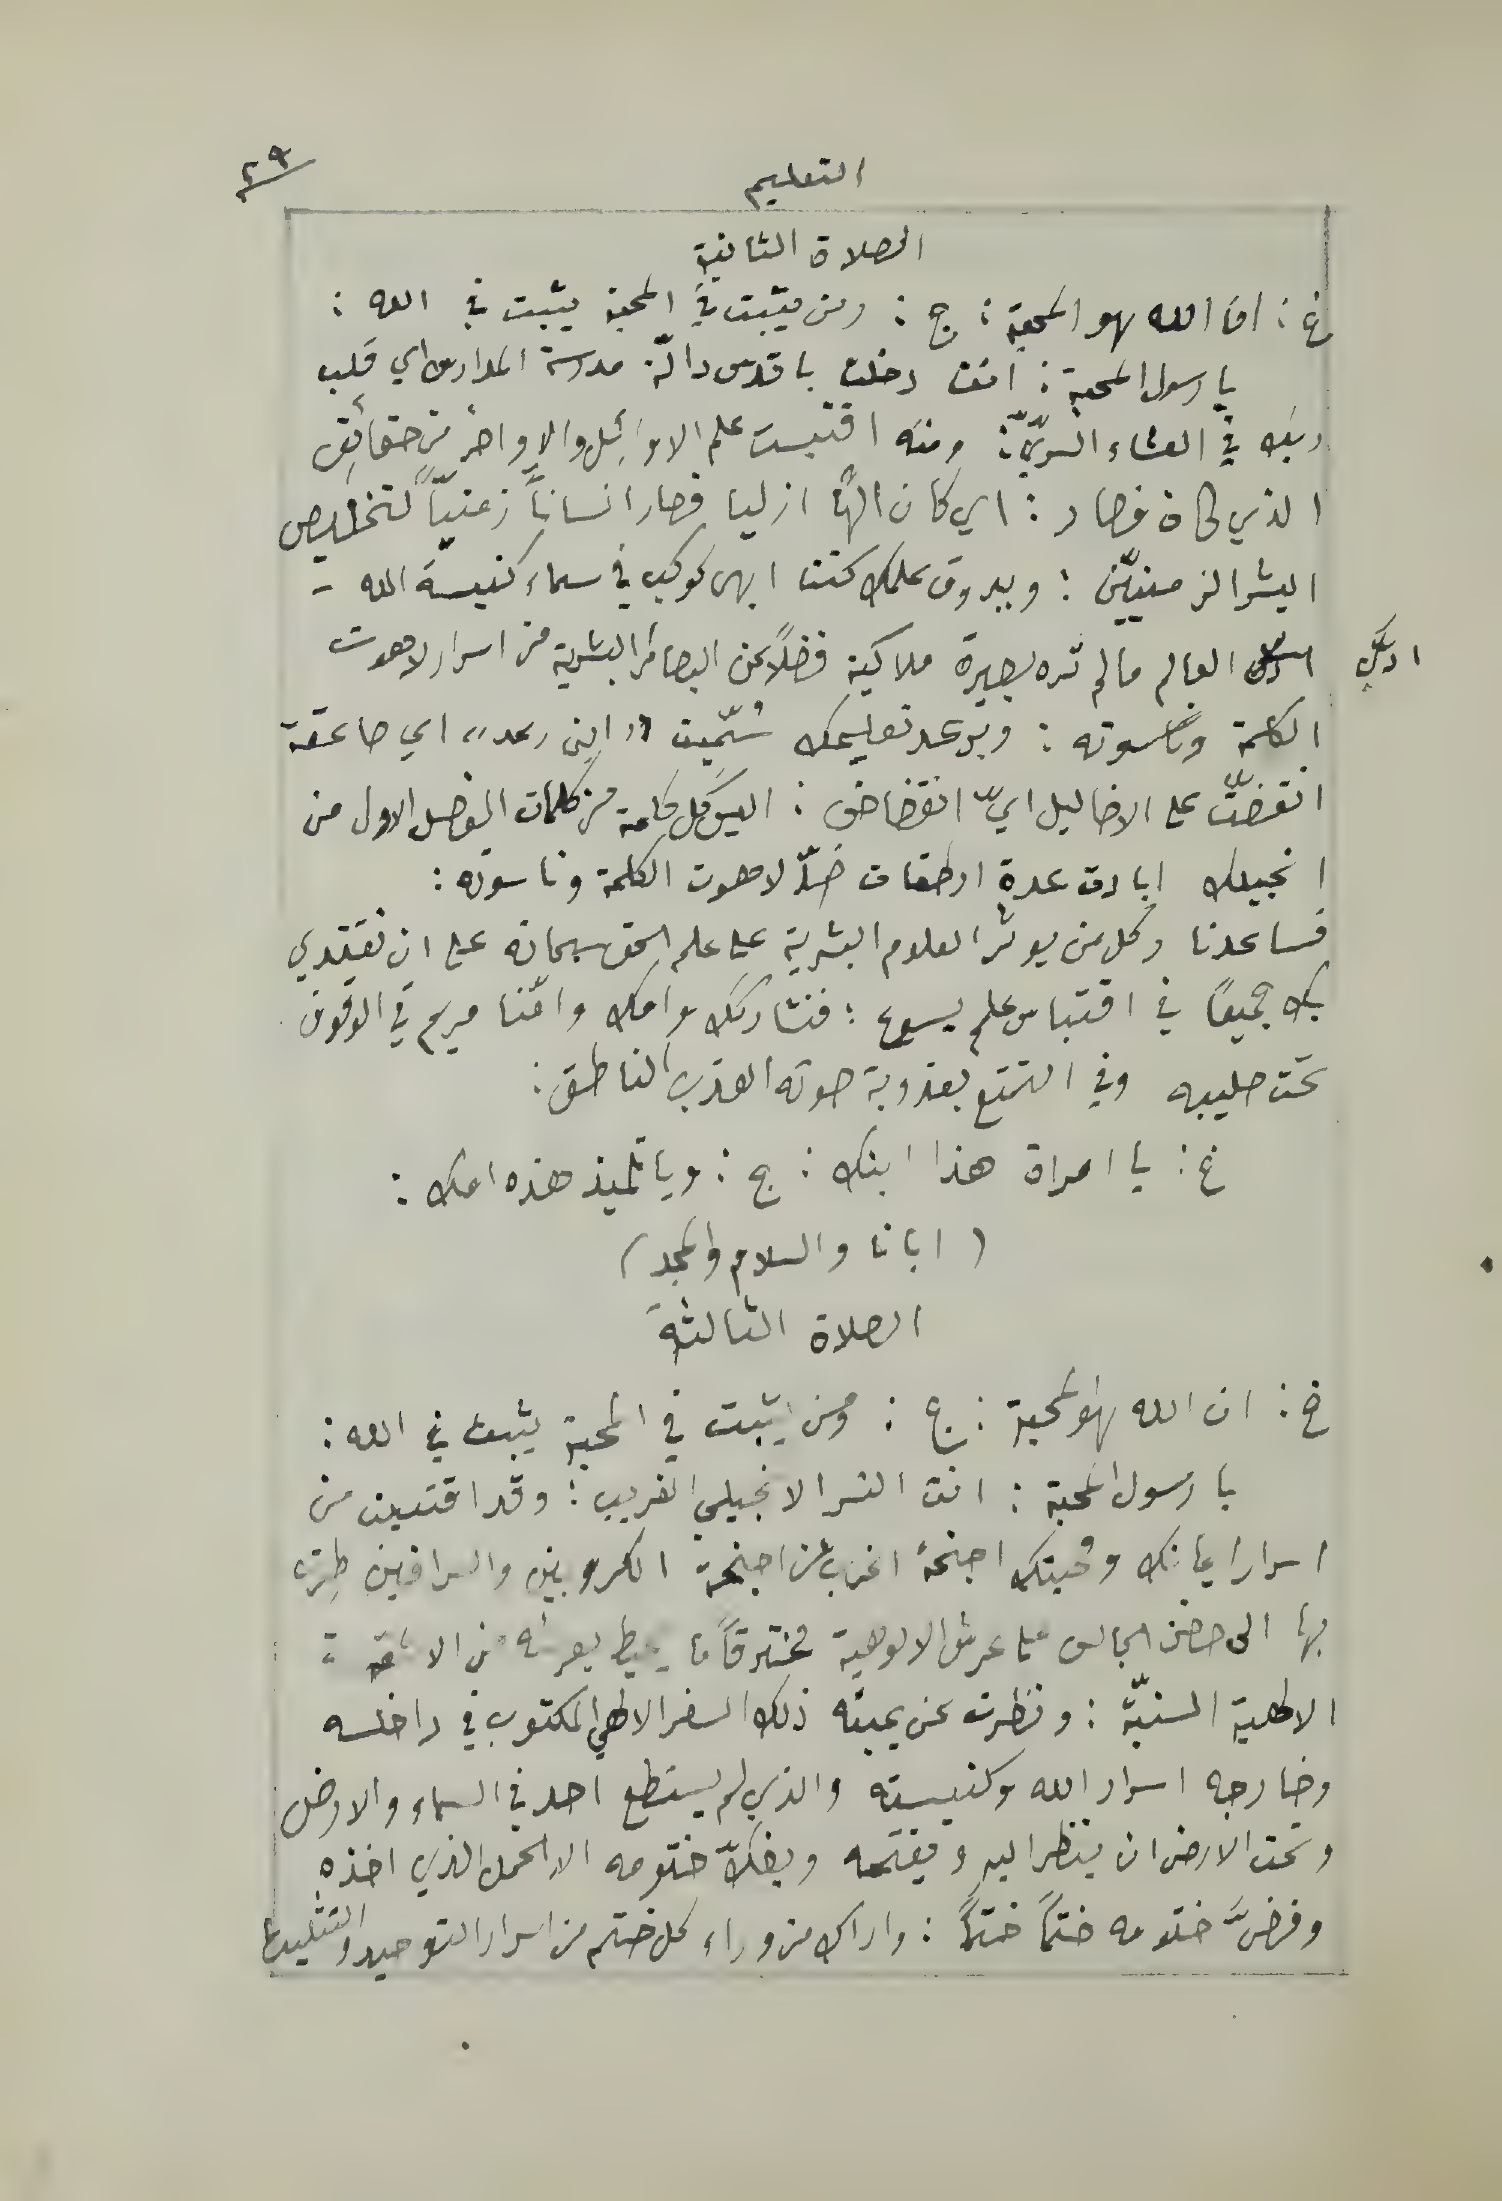 التعليم
٢٩
الصلاة الثانية
خ : ان الله هو المحبة : ج : ومن يثبت في المحبة يثبت في الله :
يا رسول المحبة : انت دخلت يا قديس دالّة مدرسة المدارس اي قلب
ربك في العشاء السرّيّ : ومنه اقتبست علم الاوائل والاواخر من حقائق
الذي كان فصار : اي كان الهًا ازليا فصار انساناً زمنيّاً لتخليص
البشر الزمنييّن : وببروق علمك كنت ابهى كوكب في سماء كنيسة الله -
ادركَ
العالم مالم تره بصيرة ملاكية فضلاً عن البصائر البشرية من اسرار لاهوت
الكلمة وناسوته : وبرعد تعليمك سُمّيت " ابن رعد " اي صاعقة
انقضتّ على الاضاليل ايّ انقضاض : اليس كل كلمة من كلمات الفصل الاول من
انجيلك ابادت عدة ارطقات ضدّ لاهوت الكلمة وناسوته :
فساعدنا وكل من يوثر العلوم البشرية على علم الحق سبحانه على ان نقتدي
بك جميعًا في اقتباس علم يسوع : فنشاركك وامك وامّنا مريم في الوقوف
تحت صليبه وفي التمتع بعذوبة صوته العذب الناطق :
خ : يا امراة هذا ابنك : ج : ويا تلميذ هذه امك :
( ابانا والسلام والمجد )
الصلاة الثالثة
خ : ان الله هو المحبة : ج : ومن يثبت في المحبة يثبت في الله :
يا رسول المحبة : انت النسر الانجيلي الغريب : وقد اقتنيت من
اسرار ايمانك ومحبتك اجنحة اغرب من اجنحة الكروبين والسرافين طِرتَ
بها الى حضن الجالس على عرش الالوهية مخترقاً ما يحيط بعرشه من الاشعة :
الالهية السنيّة : ونظرت عن يمينه ذلك السفر الالهي المكتوب في داخله
وخارجه اسرار الله وكنيسته والذي لم يستطع احد في السماء والارض
وتحت الارض ان ينظر اليه ويفتحه ويفكّ ختومه الا الحمل الذي اخذه
وفضَّ ختومه ختمًا ختمًا : واراك من وراء كل ختم من اسرار التوحيد والتثليث